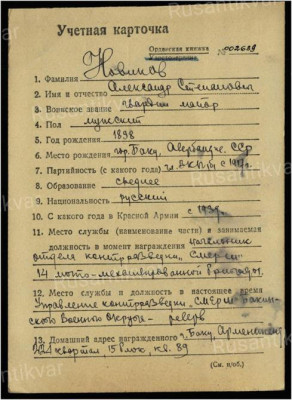 Учетная карточка
Орденская книжка
№ 002639
1. Фамилия Новиков
2. Имя и отчество Александр Степанович
3. Воинское звание гвардии майор
4. Пол мужской
5. Год рождения 1898
6. Место рождения гор. Баку, Азербайдж. ССР
7. Партийность (с какого года) чл. ВКП(б) с 1919 г.
8. Образование среднее
9. Национальность русский
10. С какого года в Красной Армии с 1939.
11. Место службы (наименование части) и занимаемая
должность в момент награждения начальник
отдела контрразведки „Смерш"
14 мото-механизированной бригады.
12. Место службы и должность в настоящее время
Управление контрразведки „Смерш" Бакин-
ского Военного Округа - резерв
13. Домашний адрес награжденного г. Баку, Арменикенд
квартал 15 блок, кв. 89
(См. н/об.)
Rusantikvar